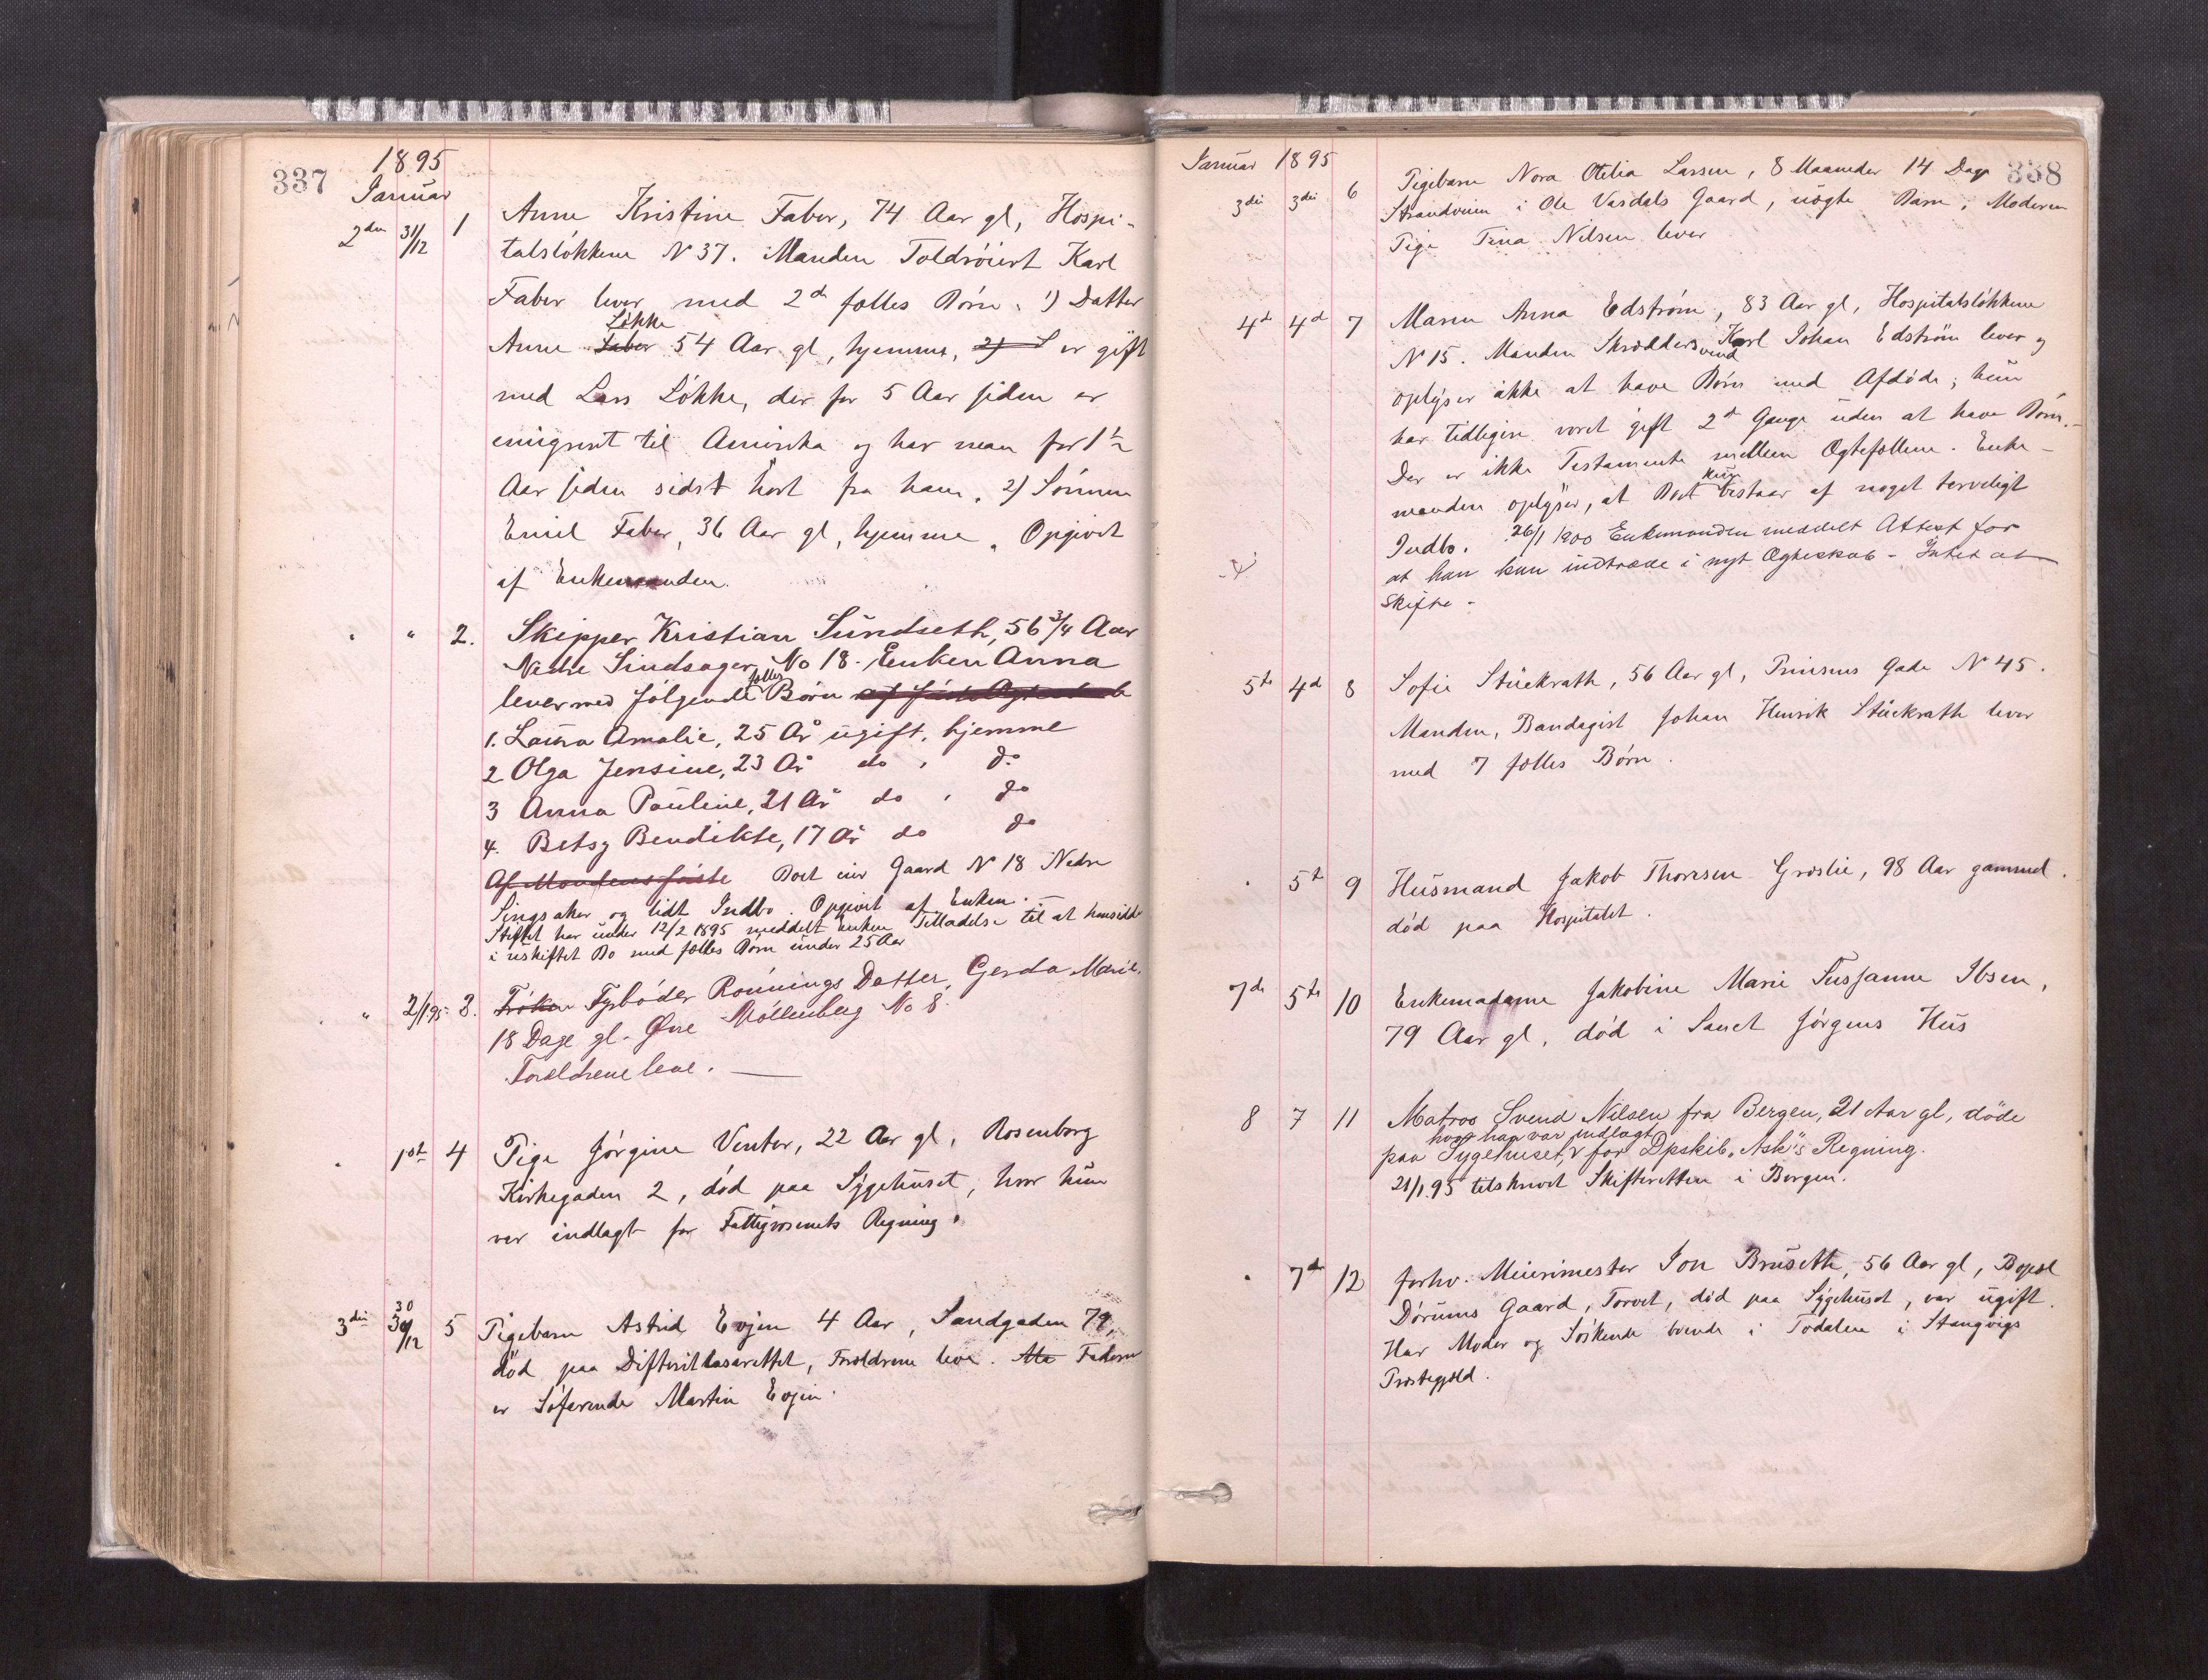 337
1895
Januar
2den 31/12 1 Anne Kristine Faber, 74 Aar gl, Hospi-
talsløkkene N 37. Manden Toldrøiert Karl
Faber lever med 2de fælles Børn: 1) Datter
Løkke
Anne Faber 54 Aar gl, hjemme, 2) S er gift
med Lars Løkke, der for 5 Aar siden er
emigreret til Amerika og har man for 1½
Aar siden sidst hørt fra ham. 2) Sønnen
Emil Faber, 36 Aar gl, hjemme. Opgivet
af Enkemanden.
" " 2. Skipper Kristian Sundseth, 56 3/4 Aar
Nedre Sindsager No 18. Enken Anna
fælles
lever med følgende Børn af første Ægteskab
1. Laura Amalie, 25 År ugift, hjemme
2 Olga Jensine, 23 År do , do
3 Anna Pauline, 21 År do , do
4. Betsy Bendikte, 17 År do do
Af Mandens første Boet eier Gaard N 18 Nedre
Singsaker og lidt Indbo. Opgivet af Enken.
Stiftet har under 12/2 1895 meddelt Enken Tilladelse til at hensidde
i uskiftet Bo med fælles Børn under 25 Aar
" 2/1 95 3. Frøken Fyrbøder Rønnings Datter, Gerda Marie,
18 Dage gl. Øvre Møllenberg No 8.
Forældrene leve.
" 1ste 4 Pige Jørgine Venter, 22 Aar gl, Rosenborg
Kirkegaden 2, død paa Sygehuset, hvor hun
var indlagt for Fattigvæsenets Regning.
30
3die 30/12 5 Pigebarn Astrid Evjen 4 Aar, Sandgaden 79,
død paa Difteritlasarettet, Forældrene leve. Ma Faderen
er Søfarende Martin Evjen.
338
Januar 1895
3die 3die 6 Pigebarn Nora Otilia Larsen, 8 Maaneder 14 Dage
Strandveien i Ole Vasdals Gaard, uægte Barn, Moderen
Pige Trina Nilsen lever
4de 4de 7 Maren Anna Edstrøm, 83 Aar gl, Hospitalsløkkene
N 15. Manden Skræddersvend Karl Johan Edstrøm lever og
oplyser ikke at have Børn med Afdøde; hun
har tidligere været gift 2de Gange uden at have Børn.-
Der er ikke Testamente mellem Ægtefællene. Enke-
kun
manden oplyser, at Boet bestaar af noget tarveligt
Indbo. 26/1 1900 Enkemanden meddelt Attest for
at han kan indtræde i nyt Ægteskab - Intet at
skifte -
5te 4de 8 Sofie Stückrath, 56 Aar gl, Prinsens Gade N 45.
Manden, Bandagist Johan Henrik Stückrath lever
med 7 fælles Børn.
" 5te 9 Husmand Jakob Thoresen Græslie, 98 Aar gammel.
død paa Hospitalet.
7de 5te 10 Enkemadame Jakobine Marie Susjanne Ibsen,
79 Aar gl, død i Sanct Jørgens Hus
8 7 11 Matros Svend Nilsen fra Bergen, 21 Aar gl, døde
hvor han var indlagt
paa Sygehuset, for Dpskib. "Ask"s Regning.
21/1.95 tilskrevet Skifteretten i Bergen.
" 7de 12 forhv. Meierimester Jon Brusetth, 56 Aar gl, Bopæl
Dørums Gaard, Torvet, død paa Sygehuset, var ugift.
Har Moder og Søskende boende i Todalen i Stangvigs
Præstegjeld.